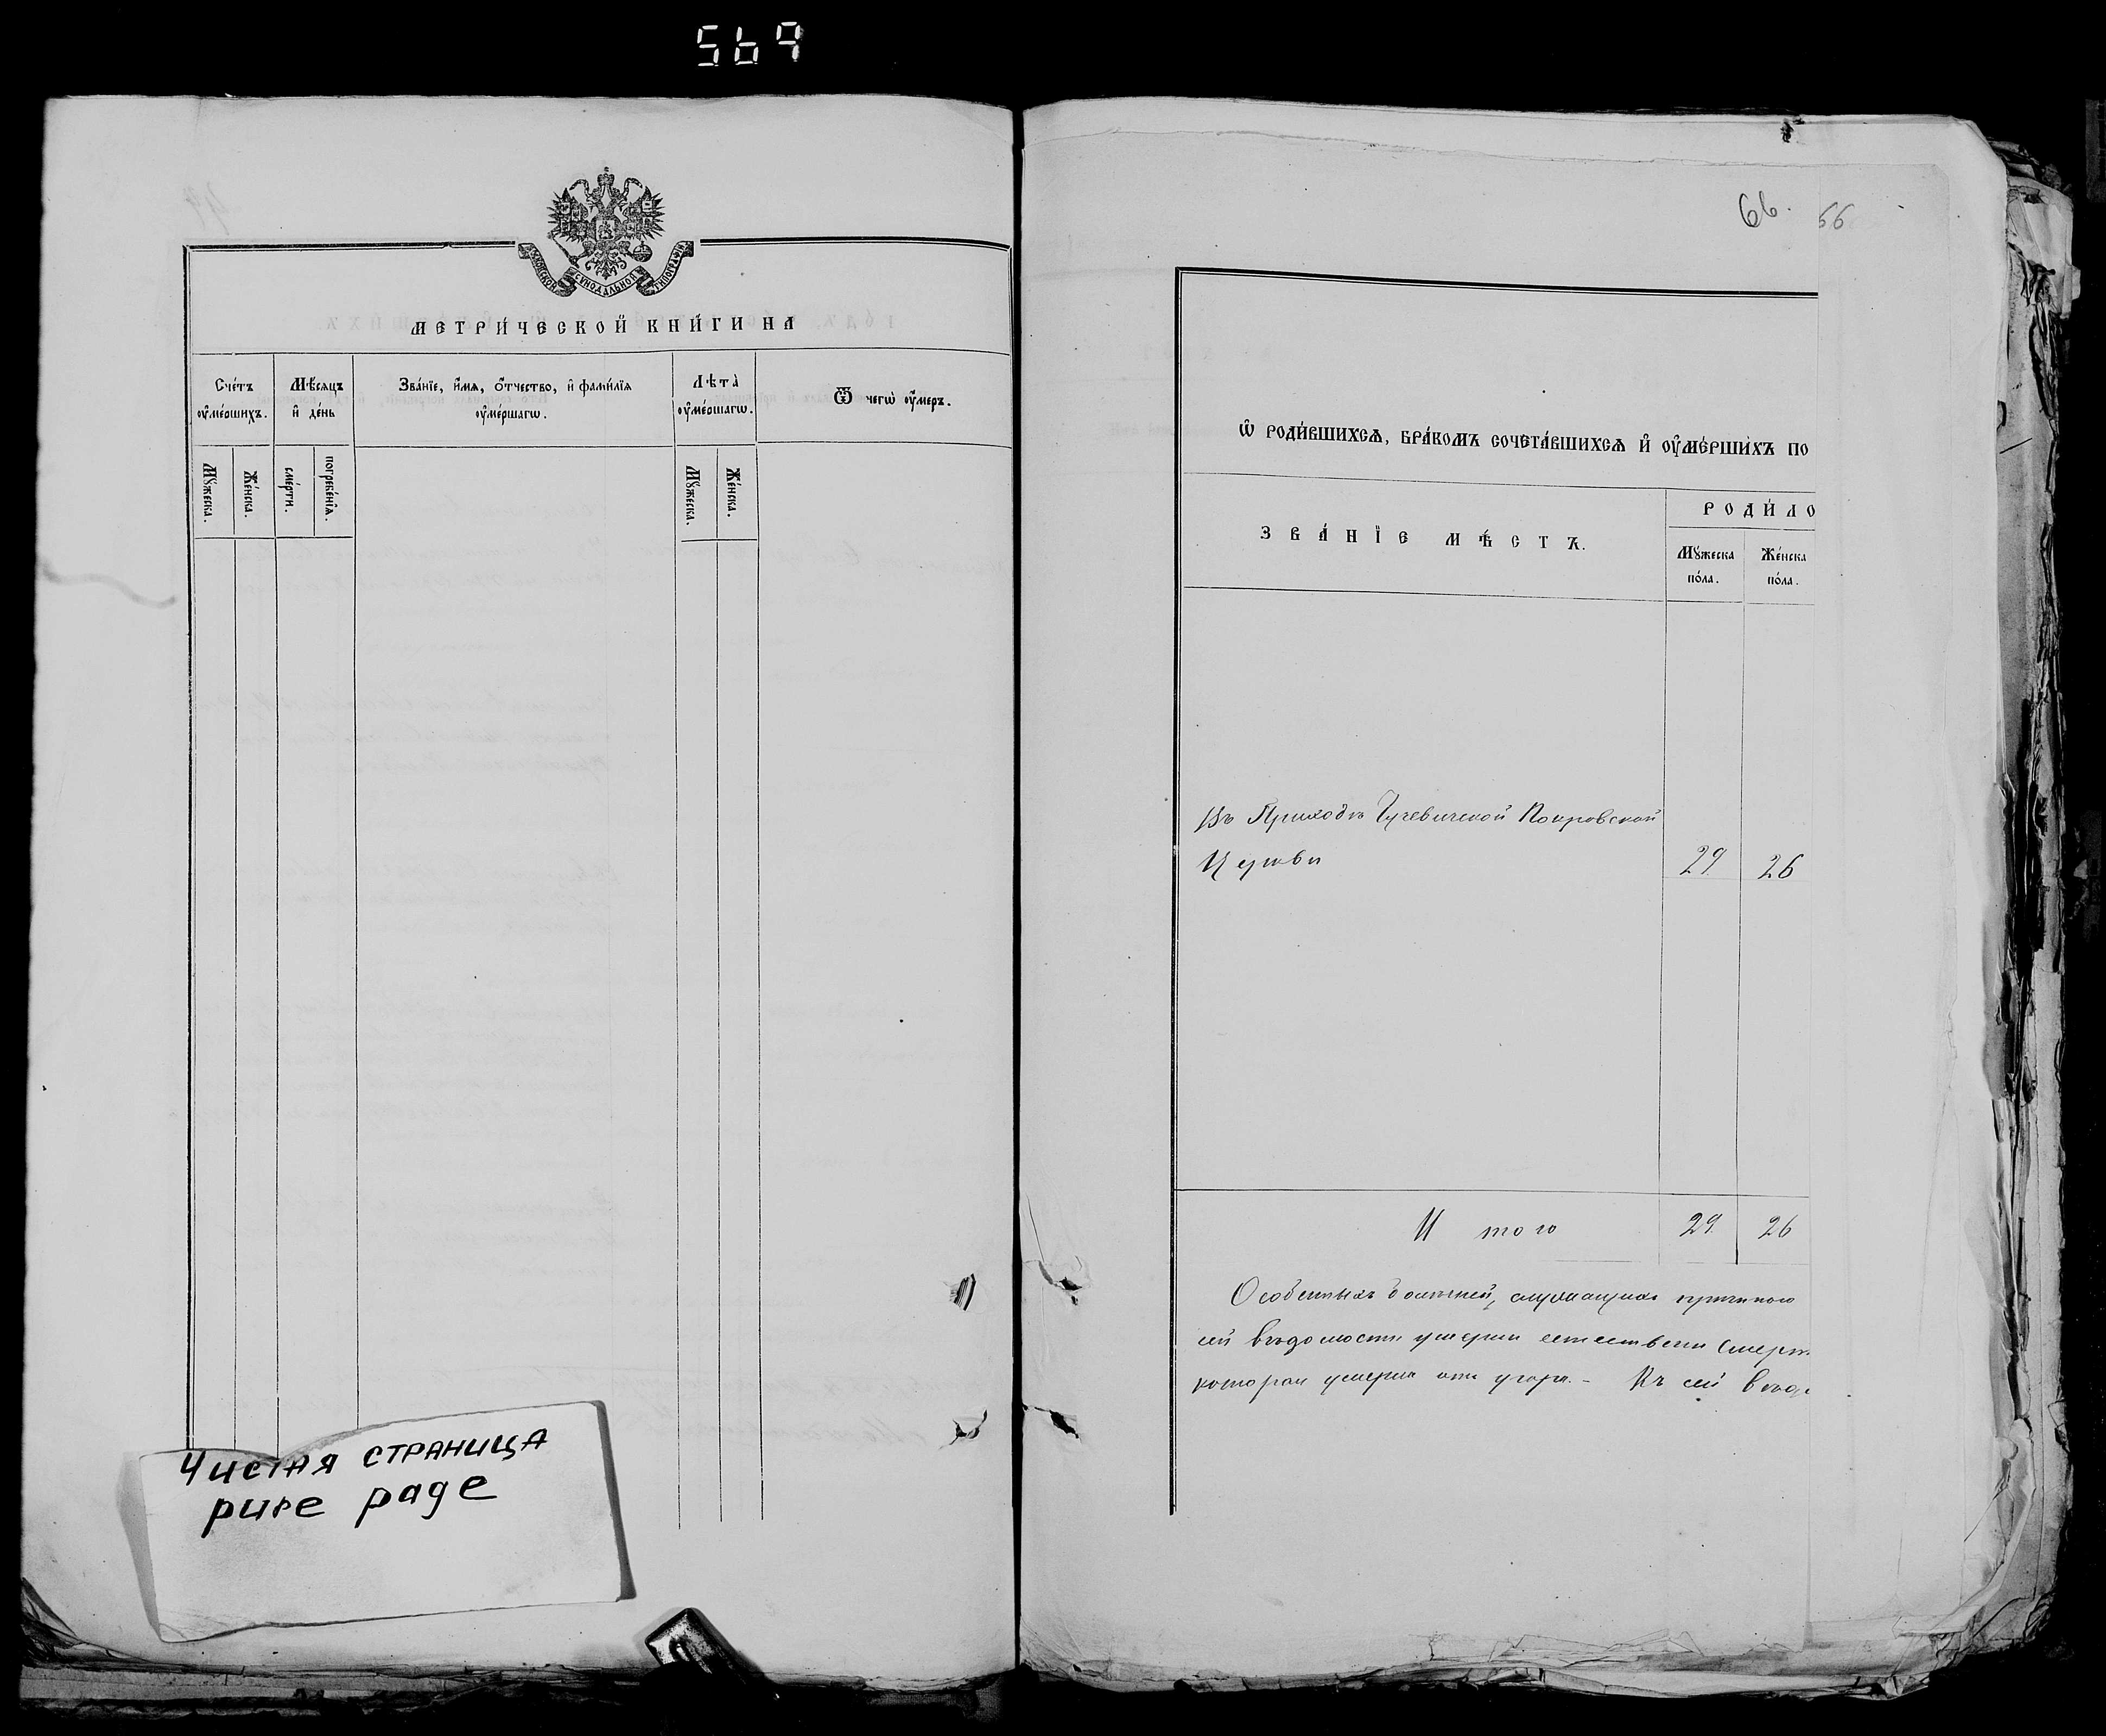 569
МОСКОВСКОЙ СѴНОДАЛЬНОЙ ТИПОГРАФІИ
МЕТРИ́ЧЕСКОЙ КНИ́ГИ НА
Сче́тъ ᲂу҆ме́ршихъ.
Мѣ́сяцъ и҆ де́нь
Зва́нїе, и҆́мя, ѻ҆́тчество, и҆ фами́лїя ᲂу҆ме́ршагѡ.
Лѣта̀ ᲂу҆ме́ршагѡ.
Ѿ чегѡ̀ ᲂу҆́меръ.
Мꙋ́жеска.
Же́нска.
сме́рти.
погребе́нїѧ.
Мꙋ́жеска.
Же́нска.
Чистая страница
pure page
66.
66
Ѡ҆ РОДИ́ВШИХСѦ, БРА́КОМЪ СОЧЕТА́ВШИХСѦ И҆ ОУ҆МЕ́РШИХЪ ПО
ЗВА́НЇЕ МѢ́СТЪ.
РОДИ́ЛО
Мꙋ́жеска по́ла.
Же́нска по́ла.
Въ Приходѣ Тучевичской Покровской
Церкви 29 26
И того 29 26
Особенныхъ болѣзней, служащихъ причиною
сей вѣдомости умерли естествен смерт
которая умерла отъ угара. – Къ сей вѣдо